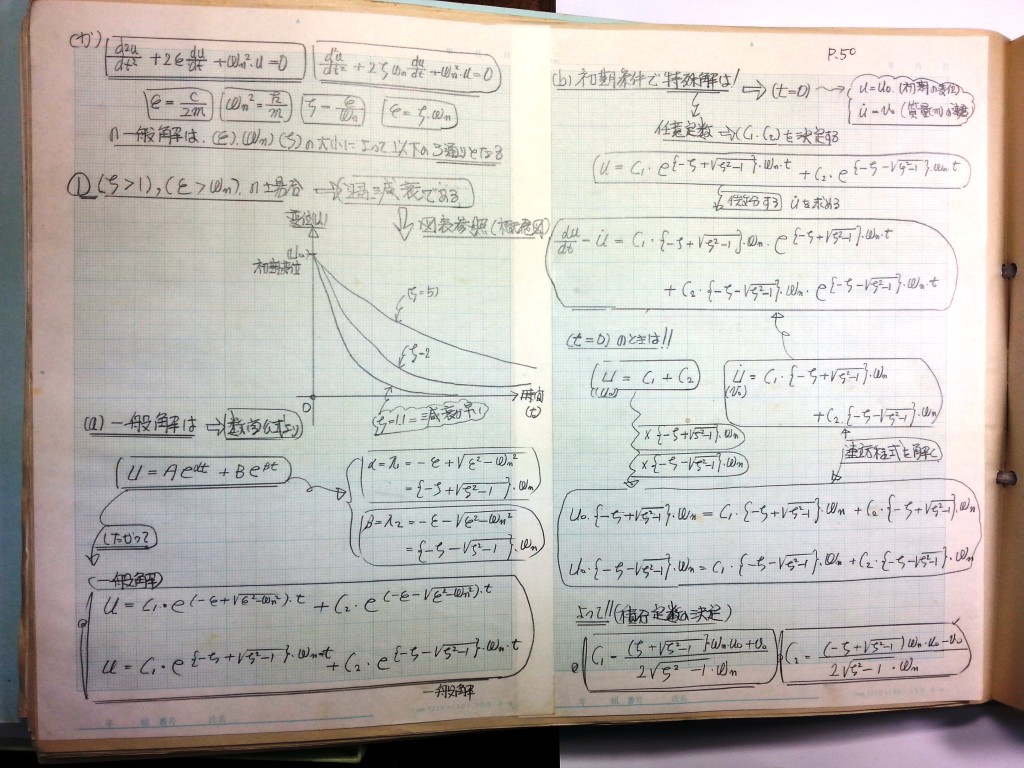 (か) d²u/dt² + 2ε du/dt + ωn²·u = 0
d²u/dt² + 2ζωn du/dt + ωn²·u = 0
ε = c/2m ωn² = k/m ζ = ε/ωn ε = ζ·ωn
一般解は、(ε)(ωn)(ζ)の大小によって以下の3通りとなる
① (ζ>1), (ε>ωn), の場合 ⇒ 減衰である
図表参照
変位(u)
初期変位
(ζ=5)
ζ=2
ζ=1.1
0
時間
(t)
(a) 一般解は ⇒ 数学公式より
u = Ae^αt + Be^βt
α = λ₁ = -ε + √ε²-ωn²
= {-ζ + √ζ²-1}·ωn
β = λ₂ = -ε - √ε²-ωn²
= {-ζ - √ζ²-1}·ωn
したがって
(一般解)
u = C₁·e^(-ε+√ε²-ωn²)·t + C₂·e^(-ε-√ε²-ωn²)·t
u = C₁·e^{-ζ+√ζ²-1}·ωn·t + C₂·e^{-ζ-√ζ²-1}·ωn·t
一般解
P.50
(b) 初期条件で特殊解は! ⇒ (t=0)
u = u₀ (初期の変位)
u̇ = v₀ (質量(m)の速度)
任意定数 ⇒ (C₁.C₂)を決定する
u = C₁·e^{-ζ+√ζ²-1}·ωn·t + C₂·e^{-ζ-√ζ²-1}·ωn·t
微分する u̇を求める
du/dt = u̇ = C₁·{-ζ+√ζ²-1}·ωn·e^{-ζ+√ζ²-1}·ωn·t
+ C₂·{-ζ-√ζ²-1}·ωn·e^{-ζ-√ζ²-1}·ωn·t
(t=0) のときは!!
u = C₁ + C₂
(u₀)
u̇ = C₁·{-ζ+√ζ²-1}·ωn
(v₀)
+ C₂·{-ζ-√ζ²-1}·ωn
×{-ζ+√ζ²-1}·ωn
×{-ζ-√ζ²-1}·ωn
連立方程式を解く
u₀·{-ζ+√ζ²-1}·ωn = C₁·{-ζ+√ζ²-1}·ωn + C₂·{-ζ+√ζ²-1}·ωn
u₀·{-ζ-√ζ²-1}·ωn = C₁·{-ζ-√ζ²-1}·ωn + C₂·{-ζ-√ζ²-1}·ωn
よって!! (積分定数の決定)
C₁ = (ζ+√ζ²-1)·ωn·u₀+v₀ / 2√ζ²-1·ωn
C₂ = (-ζ+√ζ²-1)ωn·u₀-v₀ / 2√ζ²-1·ωn